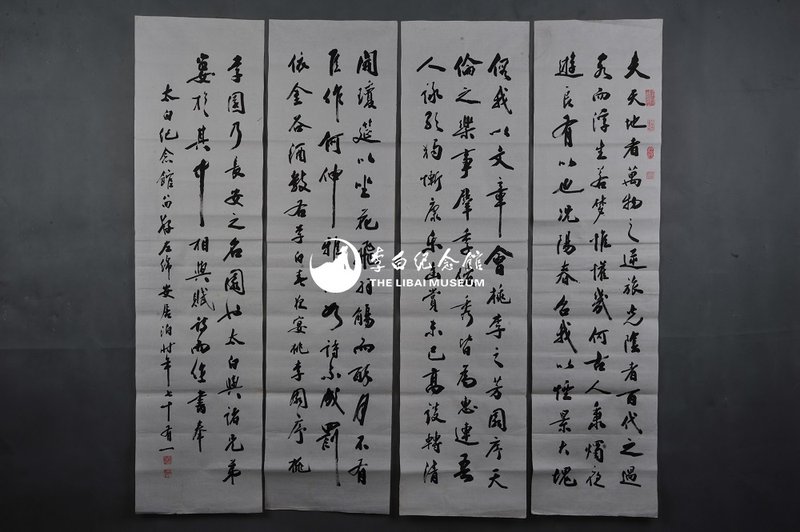 夫天地者萬物之逆旅光陰者百代之過
客而浮生若梦惟懽幾何古人秉燭夜
遊良有以也况陽春召我以煙景大塊
假我以文章會桃李之芳園序天
倫之樂事羣季俊秀皆為惠連吾
人詠歌獨慚康乐幽賞未已高談轉清
開瓊筵以坐花飛羽觴而醉月不有
佳作何伸雅詩不成罰
依金谷酒數右李白春夜宴桃李園序桃
李園乃長安之名園也太白與諸兄弟
宴於其中相與賦詩而作書奉
太白纪念館留存左绵安居泊时年七十有一
李白纪念館
THE LIBAI MUSEUM